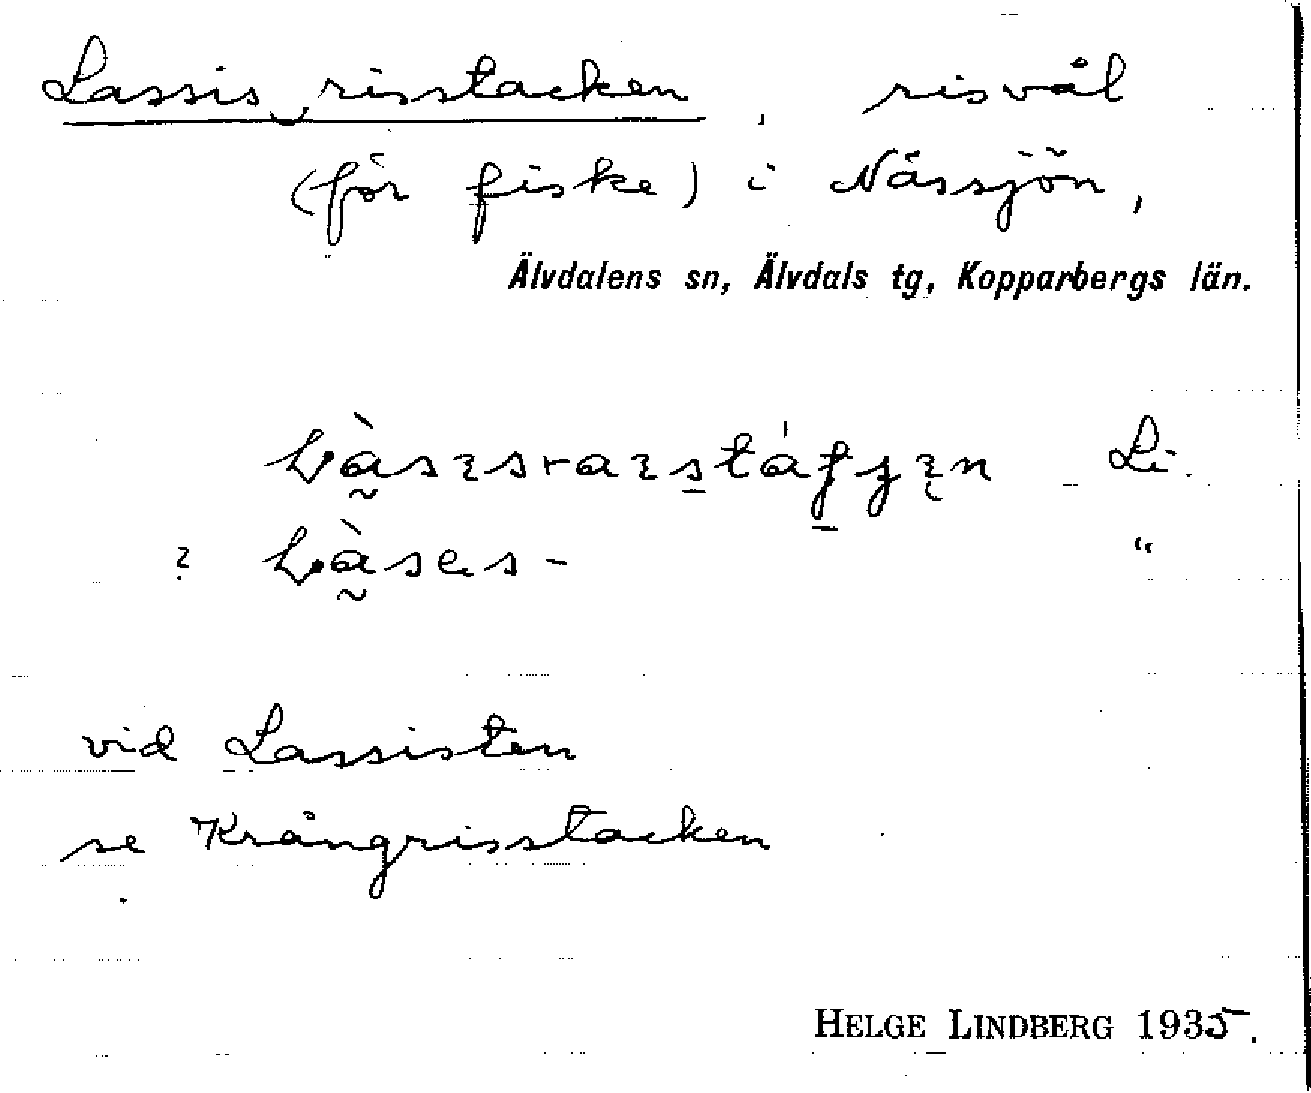 Lassis risstacken, risvål
(för fiske) i Nässjön,
Älvdalens sn, Älvdals tg, Kopparbergs län.
Li.
? "
vid Lassisten
se Krångrisstacken
HELGE LINDBERG 1935.